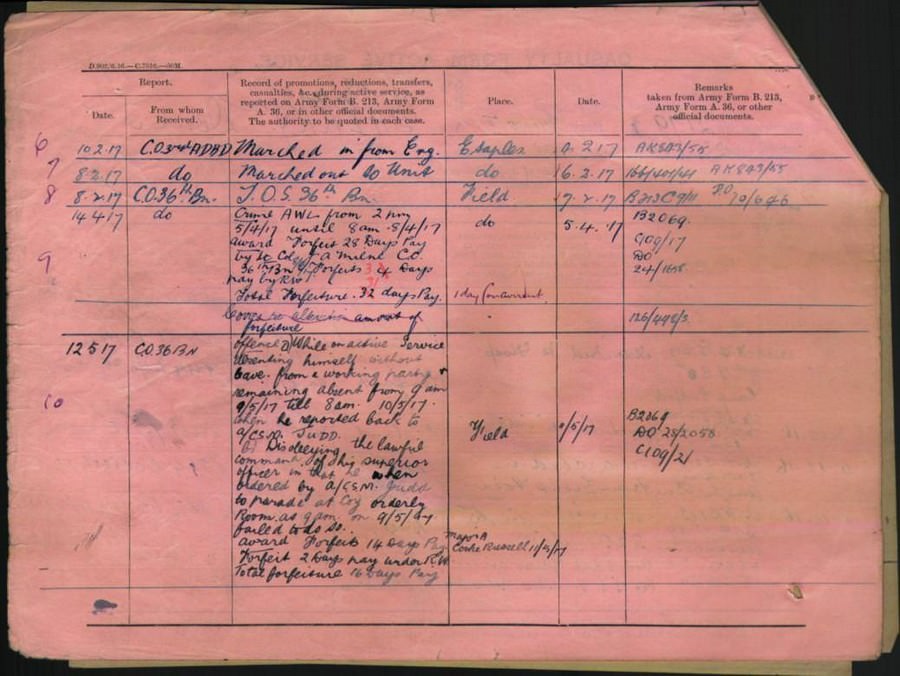 D.902/6.16.—C.7516.—50M.
Report.
Date.
From whom
Received.
Record of promotions, reductions, transfers,
casualties, &c., during active service, as
reported on Army Form B. 213, Army Form
A. 36, or in other official documents.
The authority to be quoted in each case.
Place.
Date.
Remarks
taken from Army Form B. 213,
Army Form A. 36, or other
official documents.
6
10 2.17 C.O 3rd ADBD Marched in from Eng. Etaples 2 17 AK8A3/55
7
8.2.17 do Marched out to Unit do 6.2.17 AK8A3/55
8
8.2.17 C.O 36th Bn. T.O.S 36th Bn. Field 7.2.17 10/646
14 4 17 do Crime AWL from 2 pm do 5.4.17 B2069
5/4/17 until 8am 8/4/17 C109/17
award Forfeit 28 Days Pay DO
9
by Lt Col J A Milne C.O. 24/1655
36th Bn Forfeits 4 Days
pay by RW
Total Forfeiture. 32 days Pay. 1 day Concurrent.
amount of
forfeiture
126/498/3
12 5 17 C.O 36 BN offence A/ While on active Service
absenting himself without
leave from a working party &
remaining absent from 9 am
10
9/5/17 till 8am 10/5/17.
when he reported back to
a/CSM. JUDD
B/ Disobeying the lawful
command of his superior
officer in that he when
ordered by a/CSM. Judd
to parade at Coy orderly
Room. as 9am. on 9/5/17
failed to do so.
Field 9/5/17 B2069
DO 25/2058
C109/21
award Forfeits 14 Days Pay Major A
Cooke Russell 11/5/17
Forfeit 2 Days pay under R.W
Total forfeiture 16 Days Pay